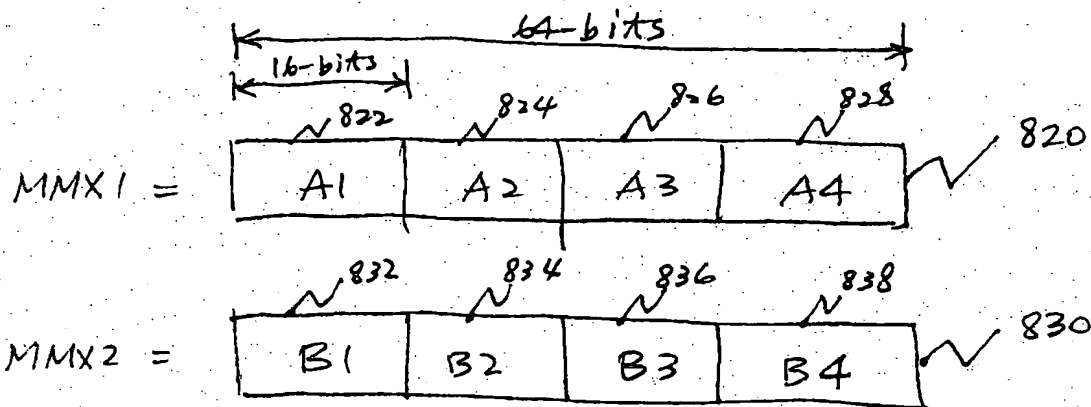 64-bits
16-bits
822 824 826 828
820
MMX1 = A1 A2 A3 A4
832 834 836 838
830
MMX2 = B1 B2 B3 B4